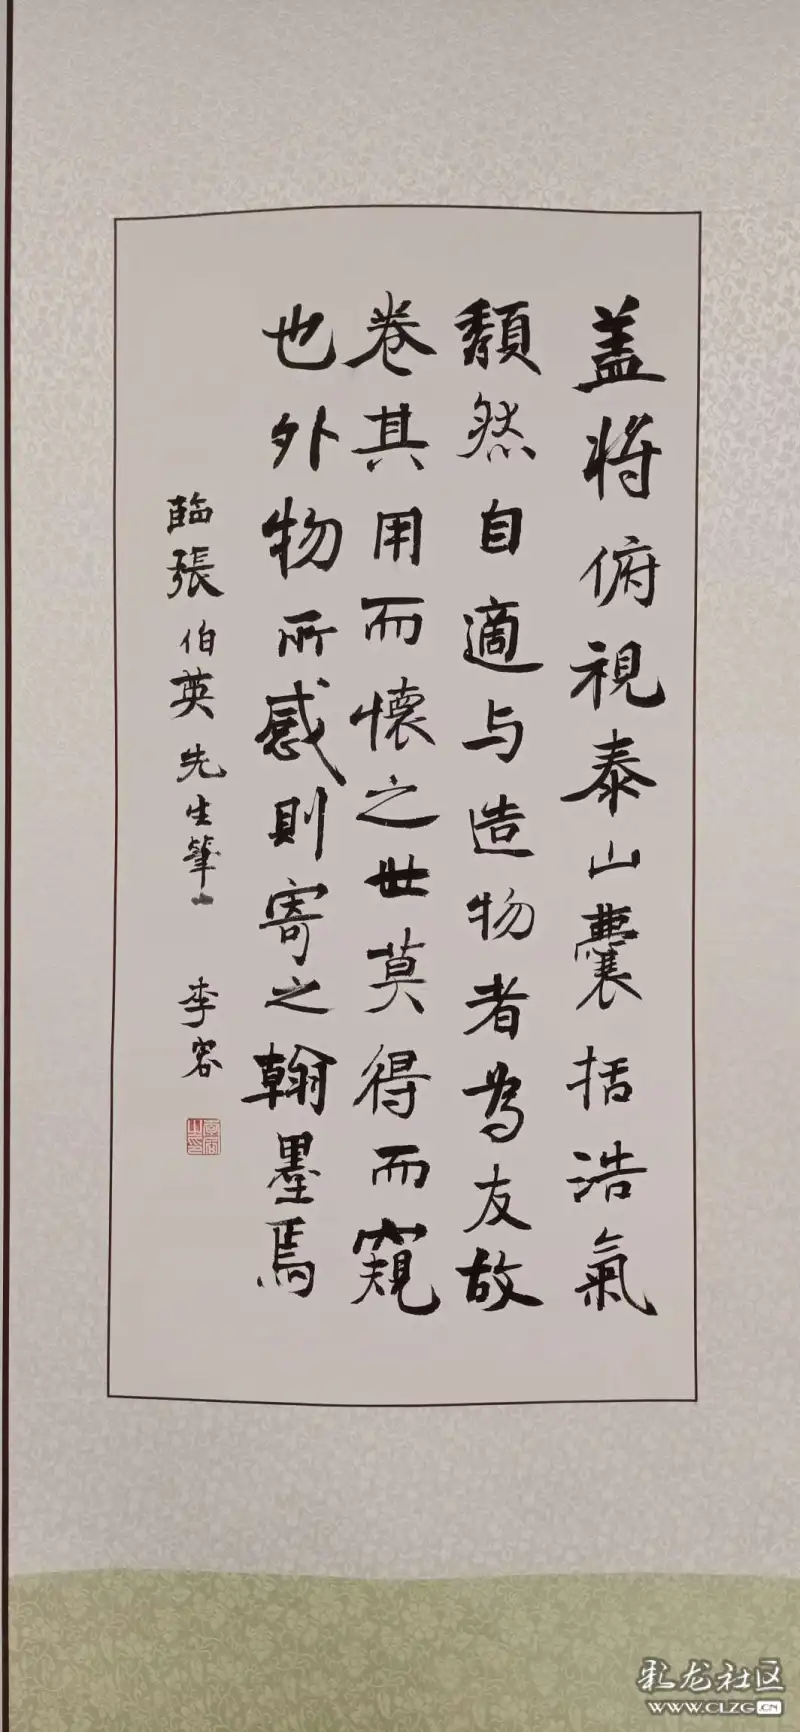 盖将俯視泰山囊括浩氣
頽然自適与造物者為友故
卷其用而懷之世莫得而窺
也外物所感則寄之翰墨焉
臨張伯英先生筆
李容
彩龙社区
WWW.CLZG.CN